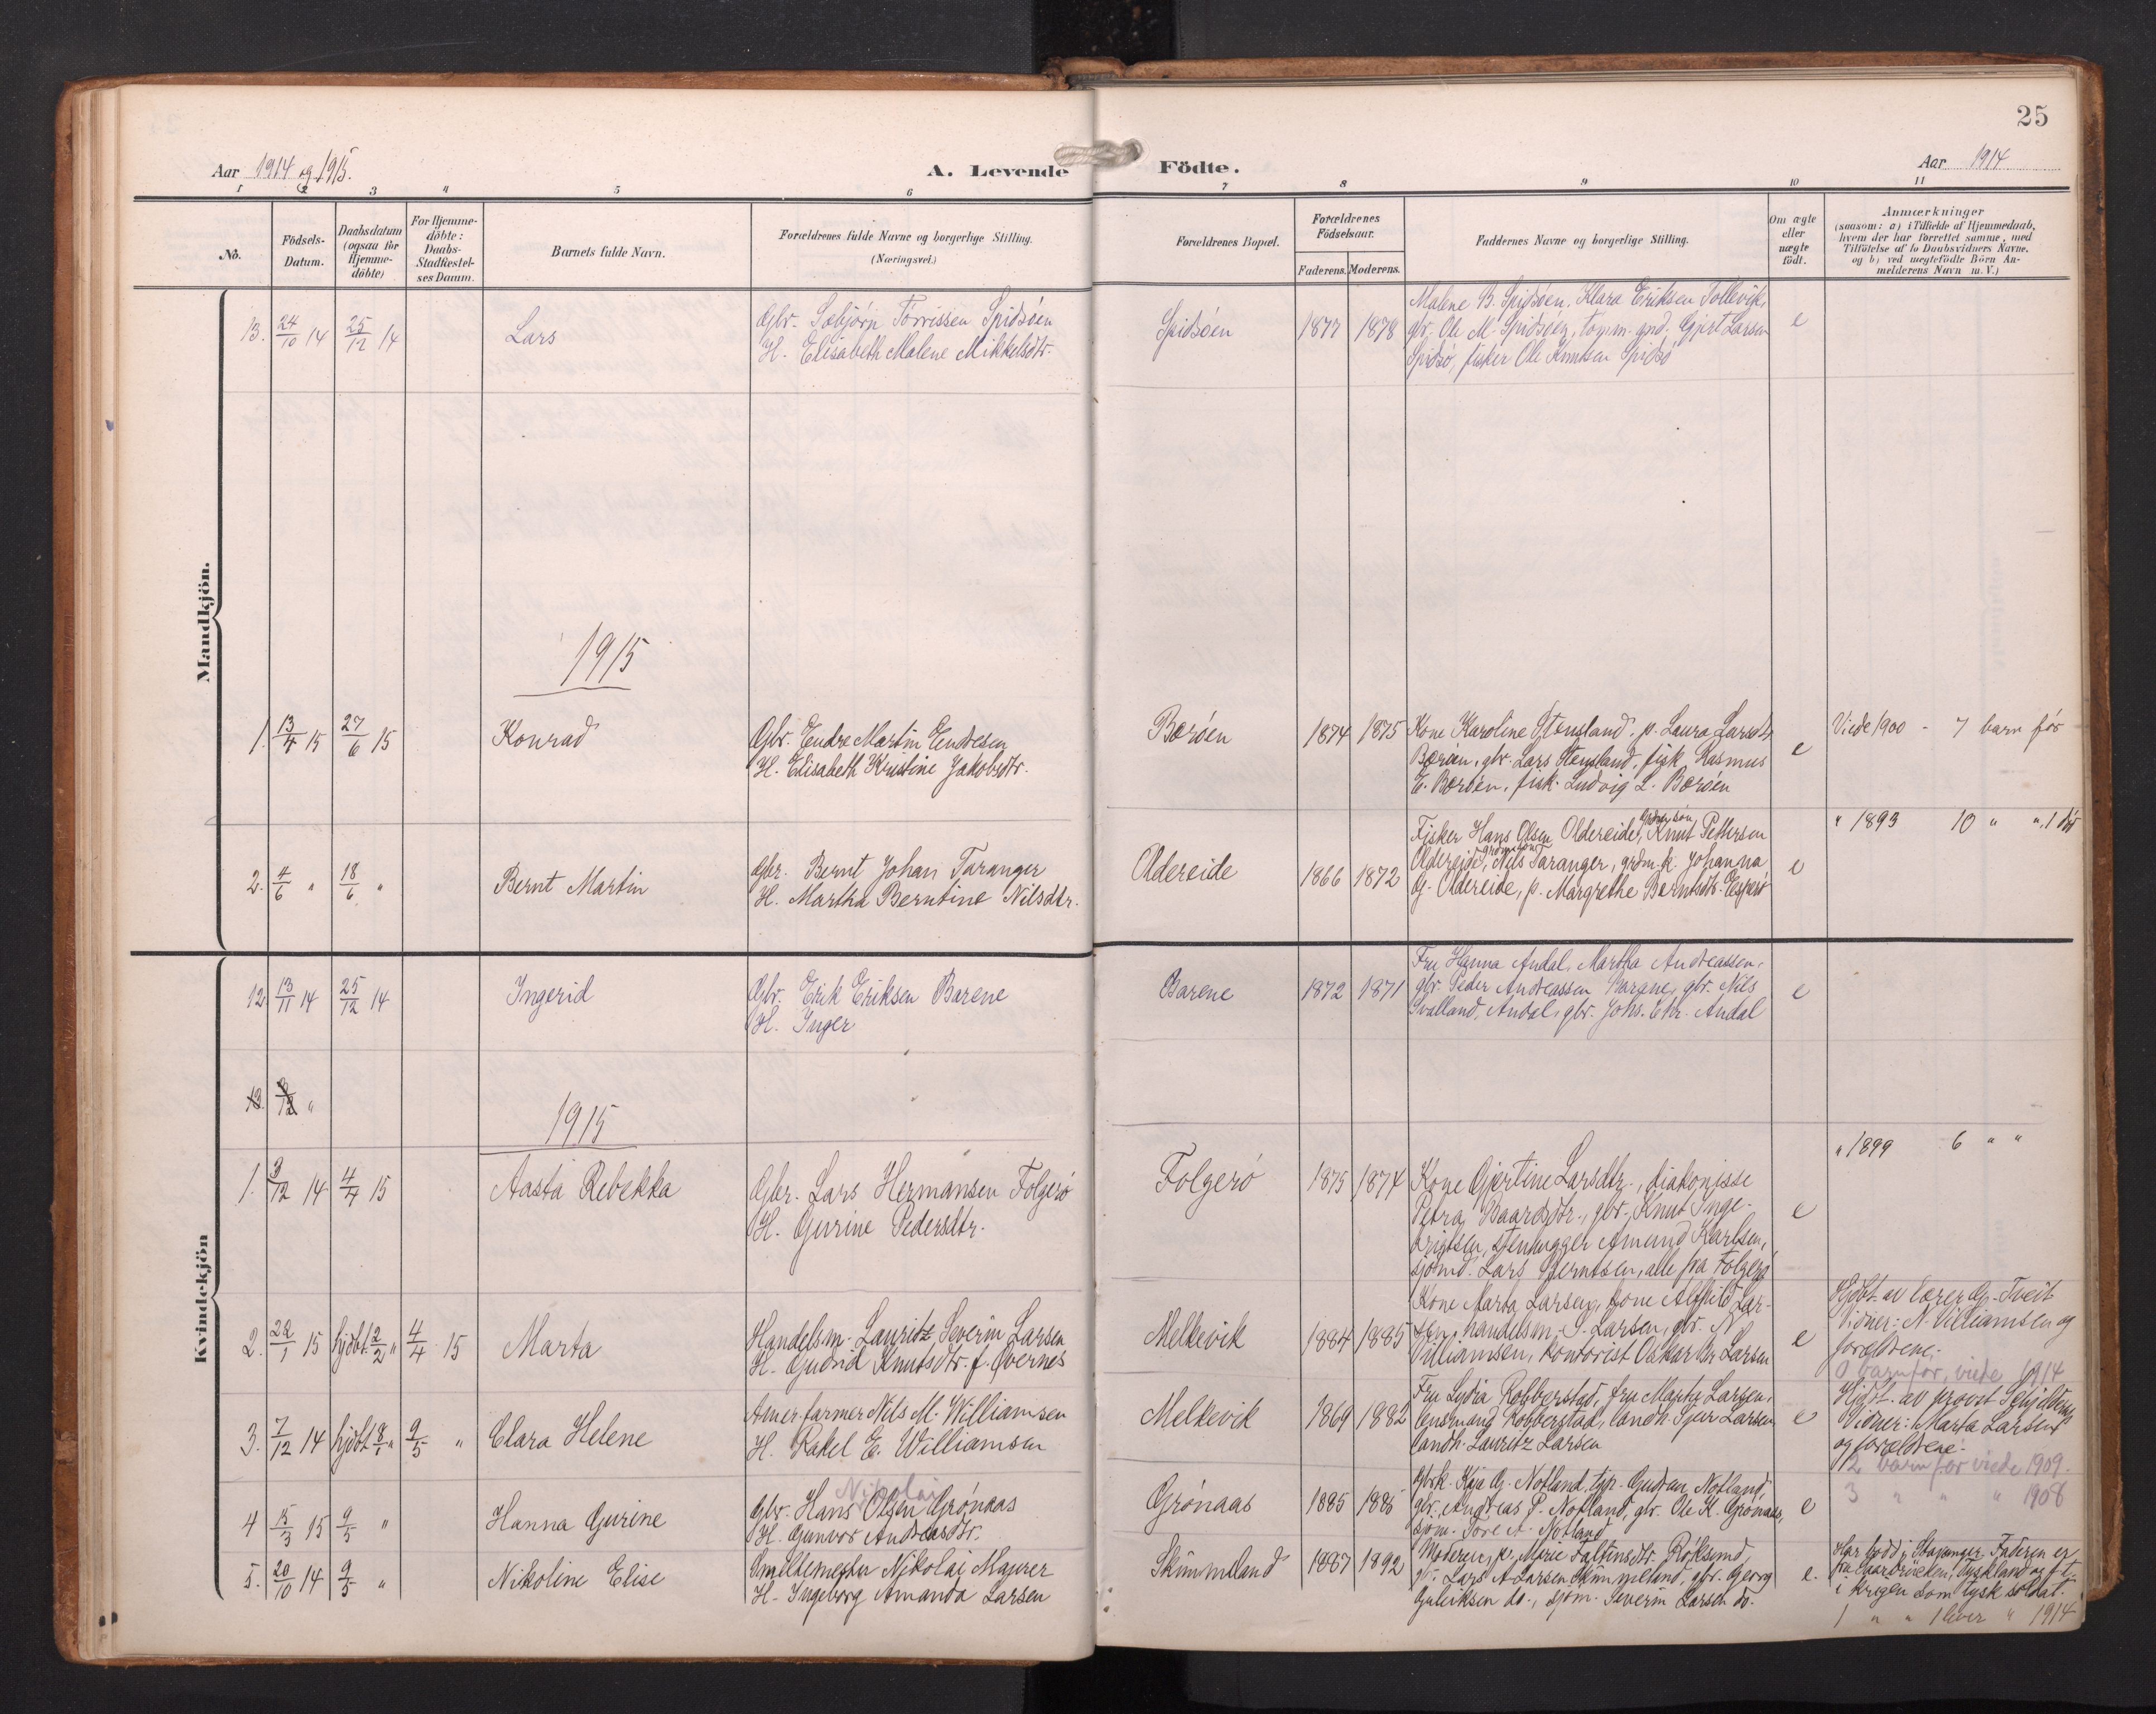 25
Aar 1914 og 1915.
A. Levende Födte.
Aar 1914
1 2 3 4 5 6 7 8 9 10 11
No.
Födsels-
Datum.
Daabsdatum
(ogsaa for
Hjemme-
döbte)
For Hjemme-
döbte:
Daabs-
Stadfestel-
ses Datum.
Barnets fulde Navn.
Forældrenes fulde Navne og borgerlige Stilling.
(Næringsvei.)
Forældrenes Bopæl.
Forældrenes
Födselsaar.
Faderens. Moderens.
Faddernes Navne og borgerlige Stilling.
Om ægte
eller
uægte
födt.
Anmærkninger
(saasom: a) i Tilfælde af Hjemmedaab,
hvem der har forrettet samme, med
Tilföielse af to Daabsvidners Navne,
og b) ved uægtefödte Börn An-
melderens Navn m. V.)
Mandkjön.
13. 24/10 14 25/12 14
Lars
Gbr. Sæbjörn Torrissen Spidsöen
H. Elisabeth Malene Mikkelsdtr.
Spidsöen
1877 1878
Malene B. Spidsöen, Klara Eriksen Tollevik,
gbr. Ole M. Spidsöen, tömm. gnd. Gjert Larsen
Spidsö, fisker Ole Knutsen Spidsö
e
1915
1. 13/4 15 27/6 15
Konrad
Gbr. Endre Martin Endresen
H. Elisabeth Kristine Jakobsdtr.
Boröen
1874 1875
Kone Karoline Stensland, p. Laura Larsdtr
Boröen, gbr. Lars Stensland, fisk. Rasmus
E. Boröen, fisk. Ludvig L. Boröen
e
Viede 1900 - 7 barn før
2. 4/6 " 18/6 "
Bernt Martin
Gbr. Bernt Johan Taranger
H. Martha Berntine Nilsdtr.
Oldereide
1866 1872
Fisker Hans Olsen Oldereide, Knut Pettersen
Oldereide, Nils Taranger, grdm.k. Johanna
G. Oldereide, p. Margrethe Berntsdtr.
e
" 1893 10 " ", 1 død
Kvindekjön
12. 13/11 14 25/12 14
Ingerid
Gbr. Erik Eriksen Barene
H. Inger
Barene
1872 1871
Fru Hanna Andal, Martha Andreassen,
gbr. Peder Andreassen Barane, gbr. Nils
Svalland, Andal, gbr. Johs. Chr. Andal
e
13. 9/12 "
1915
1. 3/12 14 4/4 15
Aasta Rebekka
Gbr. Lars Hermansen Folgerö
H. Gurine Pedersdtr.
Folgerö
1875 1874
Kone Gjertine Larsdtr., diakonisse
Petra Baardsdtr., gbr. Knut Inge-
brigtsen, stenhugger Amund Karlsen,
sjömd. Lars Berntsen, alle fra Folgerö
e
" 1899 6 " "
2. 22/1 15 hjdbt. 2/2 " 4/4 15
Marta
Handelsm. Lauritz Severin Larsen
H. Gudrid Knutsdtr. f. Övernes
Melkevik
1884 1885
Kone Marta Larsen, kone Alfhild Lar-
sen, handelsm. S. Larsen, gbr. N.
Villiamsen, kontorist Oskar Chr Larsen
e
Hjdbt. av lærer G. Tveit
Vidner: N. Villiamsen og
forældrene.
0 barn før, viede 1914
3. 7/12 14 hjdbt 8/1 " 9/5 "
Clara Helene
Amer. farmer Nils M. Williamsen
H. Rakel E. Williamsen
Melkevik
1869 1882
Fru Lydia Robberstad, fru Marta Larsen,
lensmand Robberstad, landh. Sjur Larsen
landh. Lauritz Larsen
e
Hjdbt. av provst
Vidner: Marta Larsen
og forældrene.
2 barn før viede 1909.
4 15/3 15 9/5 "
Hanna Gurine
Nikolai
Gbr. Hans Olsen Grönaas
H. Gunvor Andreasdtr.
Grönaas
1885 1886
Gbrk. Kaja G. Notland, tjp. Gudrun Notland,
gbr. Andreas P. Notland, gbr. Ole K. Grönaas,
sjöm. Tore A. Notland
e
3 " " " 1908
5. 20/10 14 9/5 "
Nikoline Elise
Smeltemester Nikolai Maurer
H. Ingeborg Amanda Larsen
Skimmeland
1887 1892
Moderen, p. Marie Faltensdtr. Röksund,
gbr. Lars A Larsen Skimmeland, gbr. Georg
Guleiksen do., sjöm. Severin Larsen do.
e.
Har bodd i Stavanger. Faderen er
fra Saarbrücken, Tyskland og f. t.
i krigen som tysk soldat.
1 " " 1 lever " 1914